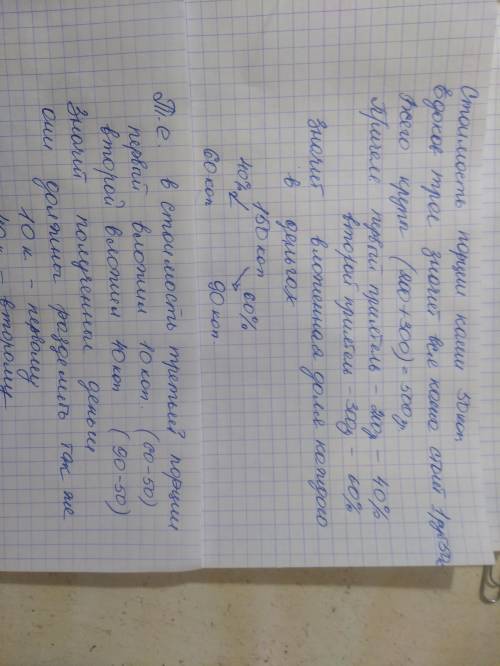 Стоимость порции каши 50 коп
Едоков трое значит вся каша стоит 1р50к
Всего крупы (200+300) = 500г.
Причем первый принёс - 200г - 40%
второй принёс - 300г - 60%
Значит вложенная доля каждого
в деньгах
150 коп
40% 60%
60 коп 90 коп
Т.е в стоимость третьей порции
первый вложил 10 коп. (60-50)
второй вложил 40 коп (90-50)
Значит полученные деньги
они должны разделить так же
10 к - первому
40 к - второму